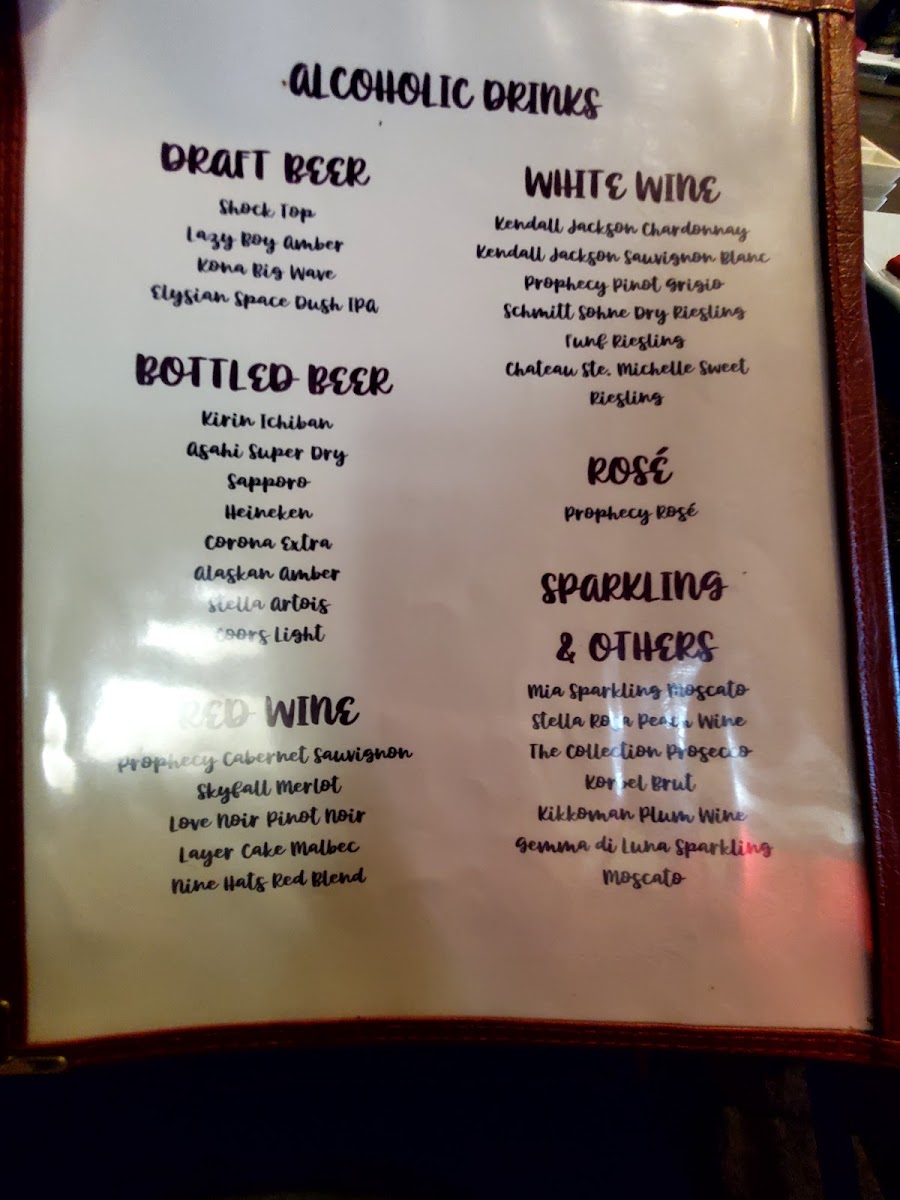 ALCOHOLIC DRINKS
DRAFT BEER
Shock Top
Lazy Boy Amber
Kona Big Wave
Elysian Space Dush IPA
BOTTLED BEER
Kirin Ichiban
Asahi Super Dry
Sapporo
Heineken
Corona Extra
Alaskan Amber
Stella Artois
Coors Light
RED WINE
Prophecy Cabernet Sauvignon
Skyfall Merlot
Love Noir Pinot Noir
Layer Cake Malbec
Nine Hats Red Blend
WHITE WINE
Kendall Jackson Chardonnay
Kendall Jackson Sauvignon Blanc
Prophecy Pinot Grigio
Schmitt Sohne Dry Riesling
Funf Riesling
Chateau Ste. Michelle Sweet
Riesling
ROSÉ
Prophecy Rosé
SPARKLING
& OTHERS
Mia Sparkling Moscato
Stella Rosa Peach Wine
The Collection Prosecco
Korbel Brut
Kikkoman Plum Wine
Gemma di Luna Sparkling
Moscato